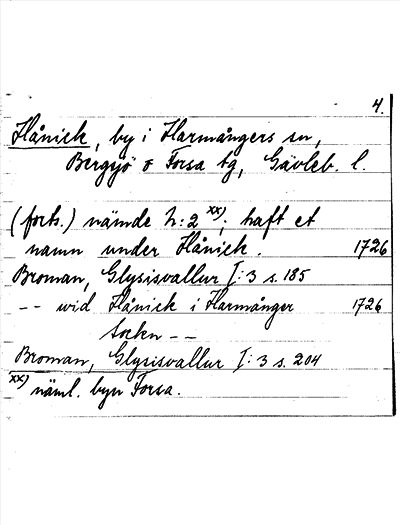 4.
Hånick, by i Harmångers sn,
Bergsjö o Forsa tg, Gävleb. l.
(forts.) nämde h:2 xx); haft et
namn under Hånick. 1726
Broman, Glysisvallur I:3 s. 185
-- wid Hånick i Harmånger 1726
Socken --
Broman, Glysisvallur I:3 s. 204
xx) näml. byn Forsa.